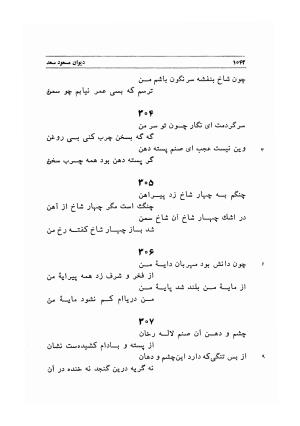 ۱۰۶۲ دیوان مسعود سعد
چون شاخ بنفشه سر نگون باشم من
ترسم که بسی عمر نیابم چو سمن
۳۰۴
سرگردمت ای نگار چون تو سر من
گه گه بسخن چرب کنی بی روغن
وین نیست عجب ای صنم پسته دهن ۳
گر پسته دهن بود همه چرب سخن
۳۰۵
چنگم به چهار شاخ زد پیراهن
چنگ است مگر چهار شاخ از آهن
در اشک چهار شاخ آن شاخ سمن
شد باز چهار شاخ کفته رخ من
۳۰۶
چون دانش بود مهربان دایهٔ من ۶
از فخر و شرف زد همه پیرایهٔ من
از مایهٔ من بلند شد پایهٔ من
من دریاام کم نشود مایهٔ من
۳۰۷
چشم و دهن آن صنم لاله رخان
از پسته و بادام کشیده‌ست نشان
از بس تنگی که دارد این چشم و دهان ۹
نه گریه درین گنجد نه خنده در آن